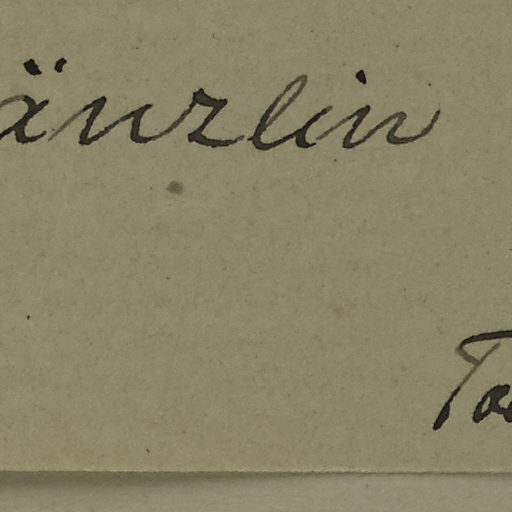 änzlin
To